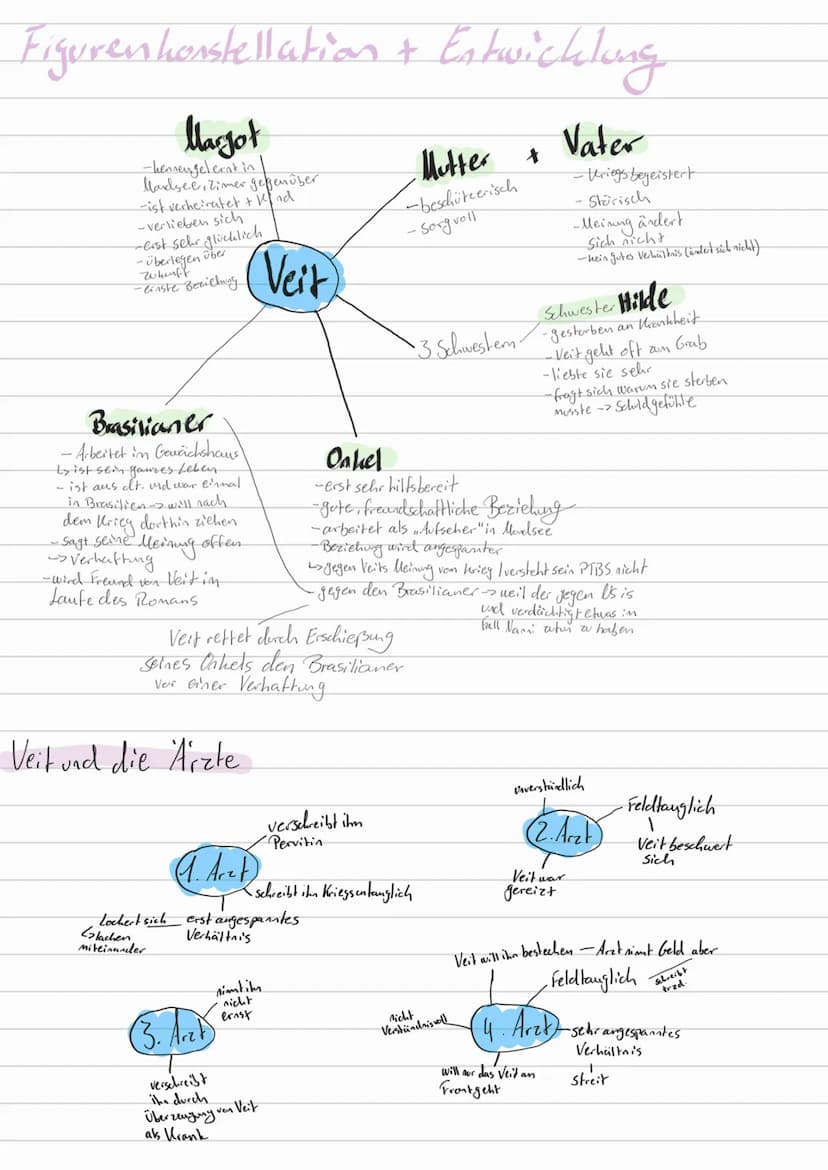 Figurenkonstellation + Entwicklung
Margot
- kennengelernt in
Mondsee, Zimer gegenüber
- ist verheiratet + Kind
- verlieben sich
- erst sehr glücklich
- überlegen über
Zukunft
- ernste Beziehung
Mutter + Vater
- beschützerisch
- sorgvoll
- Kriegsbegeistert
- Störisch
- Meinung ändert
sich nicht
- kein gutes Verhältnis (ändert sich nicht)
Veit
3 Schwestern
Schwester Hilde
- gestorben an Krankheit
- Veit geht oft zum Grab
- liebte sie sehr
- fragt sich warum sie sterben
musste -> Schuldgefühle
Brasilianer
- Arbeitet im Gewächshaus
↳ ist sein ganzes Leben
- ist aus dt. und war einmal
in Brasilien -> will nach
dem Krieg dorthin ziehen
- sagt seine Meinung offen
-> Verhaftung
- wird Freund von Veit im
Laufe des Romans
Onkel
- erst sehr hilfsbereit
- gute, freundschaftliche Beziehung
- arbeitet als „Aufseher" in Mondsee
- Beziehung wird angespannter
↳ gegen Veits Meinung von Krieg / versteht sein PTBS nicht
- gegen den Brasilianer -> weil der gegen is
und verdächtigt etwas im
Fall Nanni zutun zu haben
Veit rettet durch Erschießung
seines Onkels den Brasilianer
vor einer Verhaftung
Veit und die Ärzte
1. Arzt
verschreibt ihm
Pervitin
schreibt ihn Kriegsuntauglich
erst angespanntes
Verhältnis
Lockert sich
↳ lachen
miteinander
2. Arzt
unverständlich
Feldtauglich
Veit beschwert
sich
Veit war
gereizt
3. Arzt
nimt ihn
nicht
ernst
verschreibt
ihn durch
Überzeugung von Veit
als Krank
4. Arzt
Veit will ihn bestechen - Arzt nimt Geld aber
schreibt
trzd.
Feldtauglich
nicht
Verständnisvoll
sehr angespanntes
Verhältnis
Streit
will nur das Veit an
Front geht